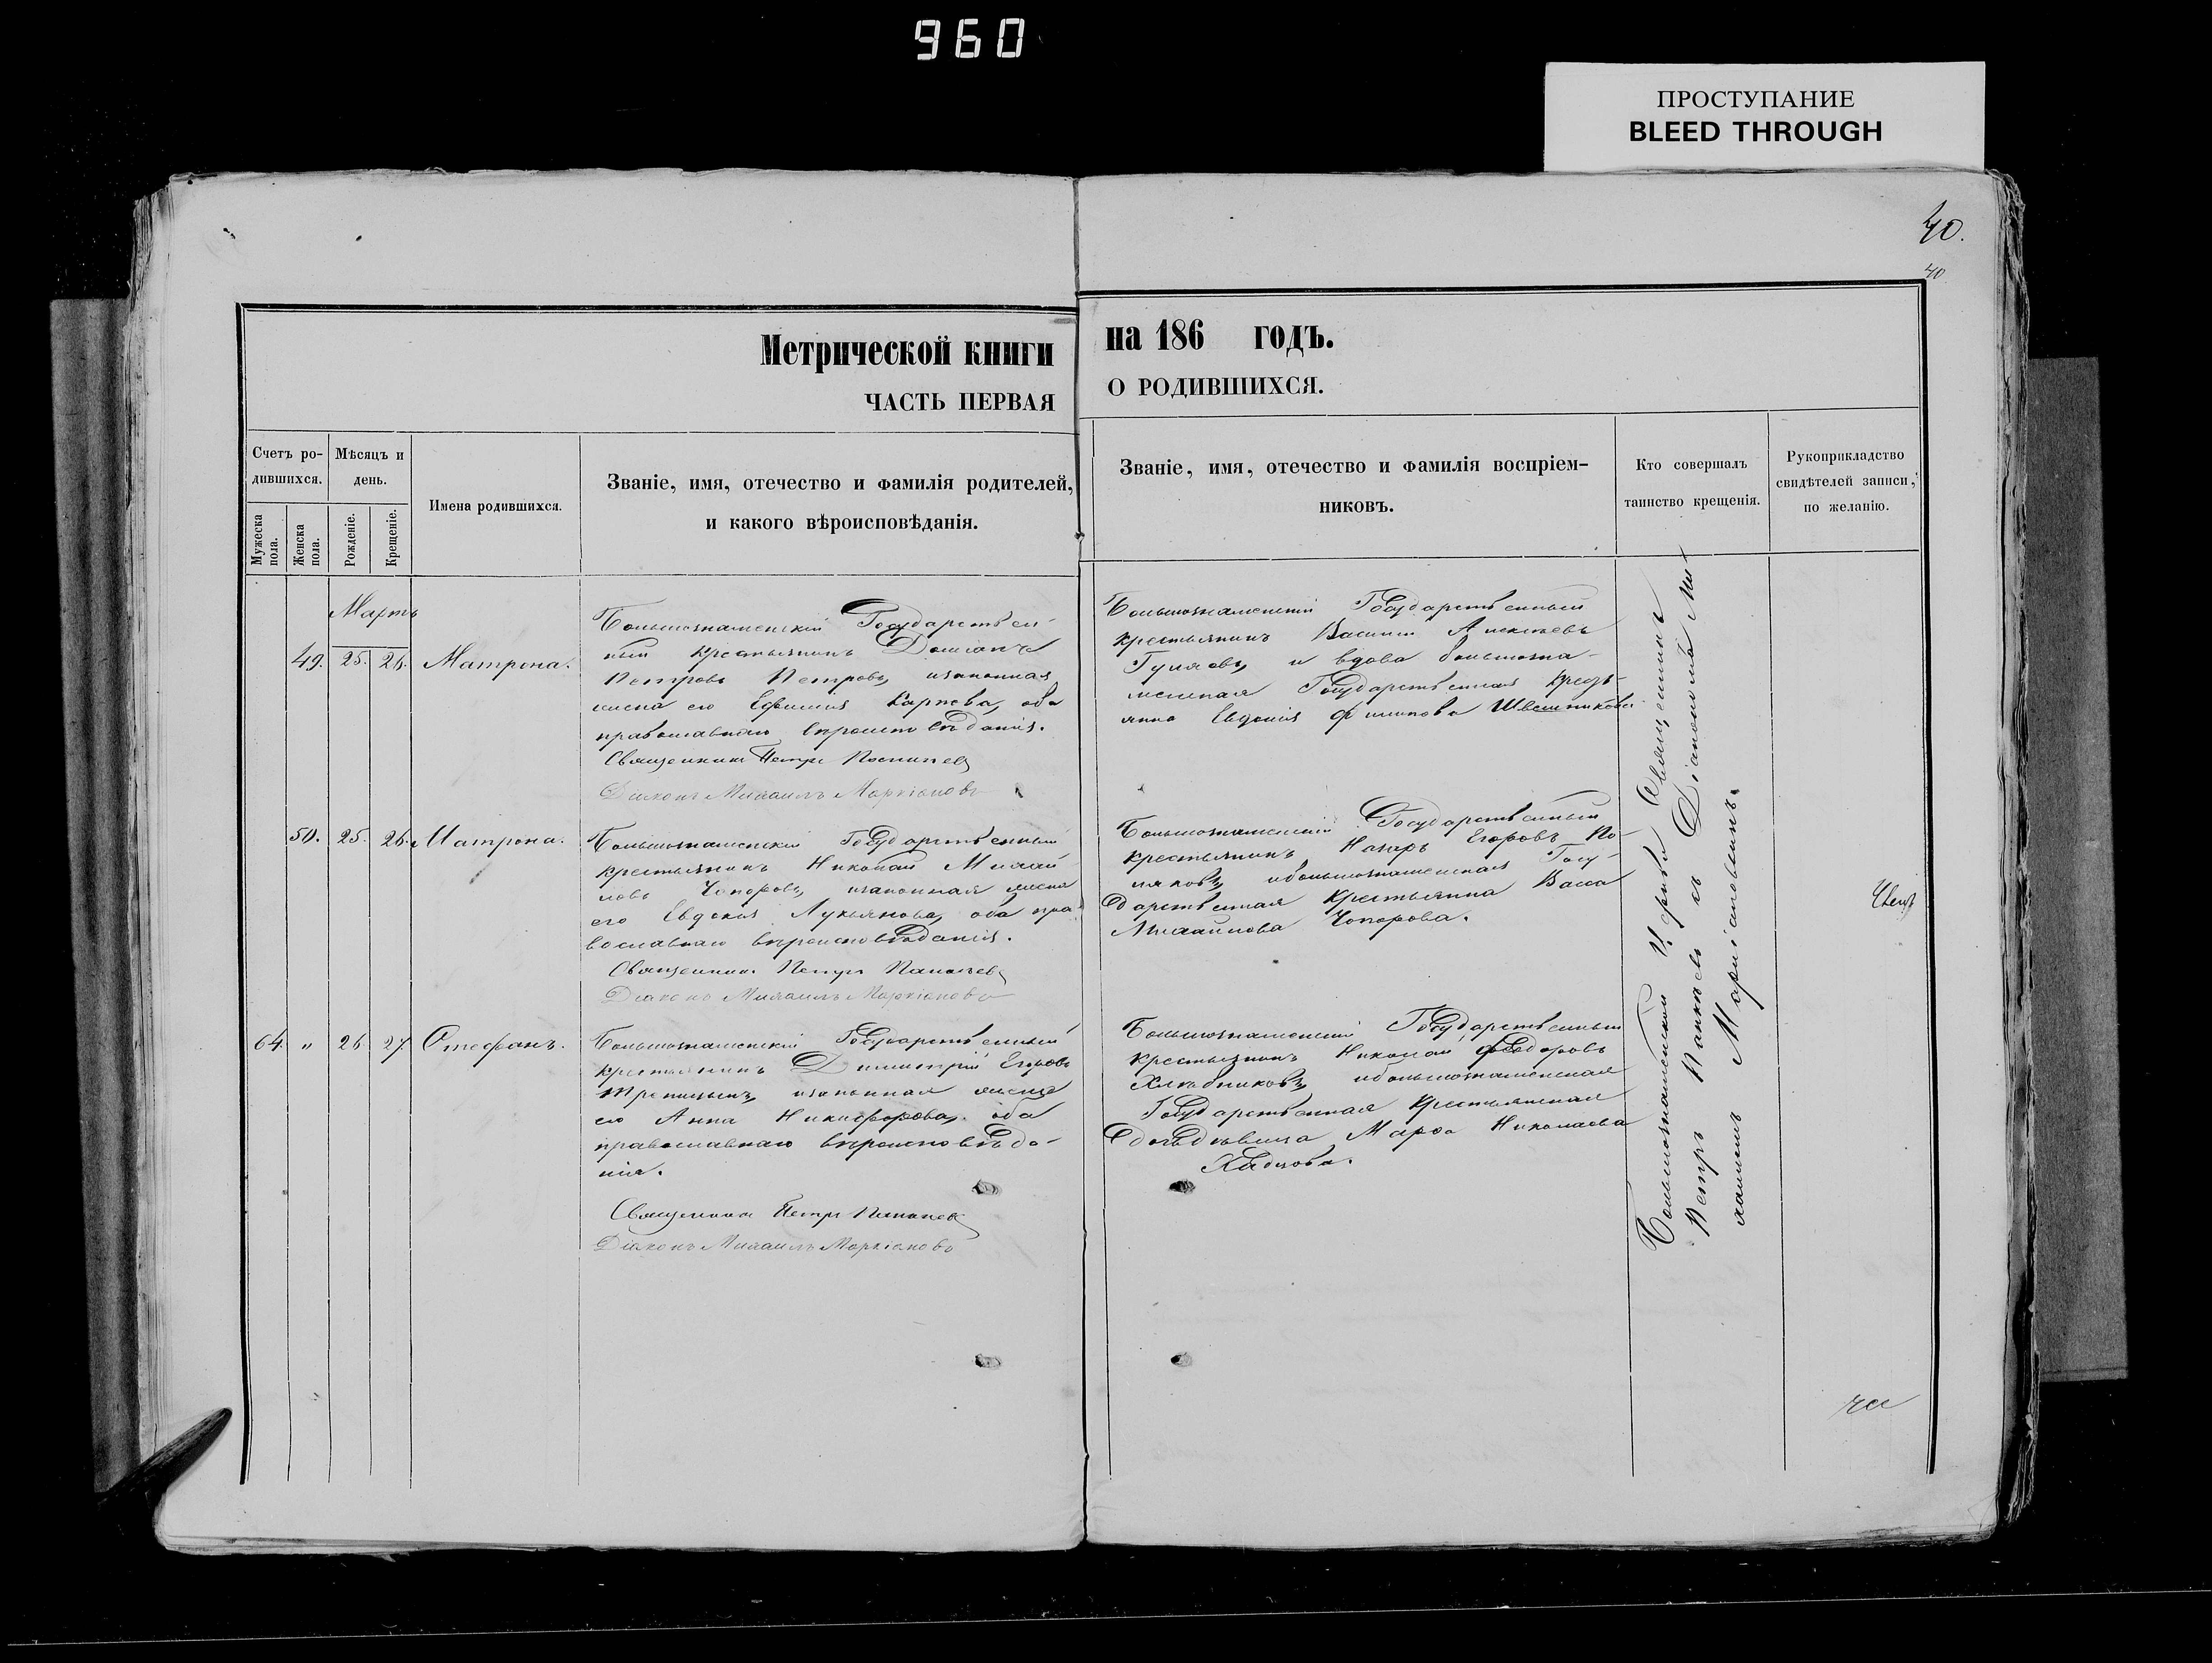 960
ПРОСТУПАНИЕ
BLEED THROUGH
40.
40
Метрической книги на 186 годъ.
ЧАСТЬ ПЕРВАЯ О РОДИВШИХСЯ.
Счетъ ро-
дившихся.
Мужеска
пола.
Женска
пола.
Мѣсяцъ и
день.
Рожденіе.
Крещеніе.
Имена родившихся.
Званіе, имя, отечество и фамилія родителей,
и какого вѣроисповѣданія.
Званіе, имя, отечество и фамилія воспріем-
никовъ.
Кто совершалъ
таинство крещенія.
Рукоприкладство
свидѣтелей записи,
по желанію.
Мартъ
49. 25. 26. Матрона.
Большознаменскій Государствен-
ный крестьянинъ
Петровъ Петровъ, изаконная
жена его Ефимия Карпова, оба
православнаго вѣроисповѣданія.
Священникъ Петръ
Діаконъ Михаилъ Маркіановъ
Большознаменскій Государственный
крестьянинъ Василий Алексѣевъ
Гуляевъ, и вдова большозна-
менская Государственная кресть-
янка Евдокія Филипова
50. 25. 26. Матрона.
Большознаменскій Государственный
крестьянинъ Николай Михай-
ловъ Чопоровъ, изаконная жена
его Евдокия Лукьянова, оба пра-
вославнаго вѣроисповѣданія.
Священникъ Петръ
Діаконъ Михаилъ Маркіановъ
Большознаменскій Государственный
крестьянинъ Назаръ Егоровъ По-
ляковъ, ибольшознаменская Госу-
дарственная Крестьянка Васса
Михайлова Чопорова.
64. " 26. 27. Стефанъ.
Большознаменскій Государственный
крестьянинъ Димитрій Егоровъ
изаконная жена
его Анна Никифорова, оба
православнаго вѣроисповѣда-
нія.
Священникъ Петръ
Діаконъ Михаилъ Маркіановъ
Большознаменскій Государственный
Крестьянинъ Николай Феодоровъ
Хлѣбниковъ, ибольшознаменская
Государственная Крестьянская
дочь дѣвица Марфа Николаева
Большознаменской Церкви Священникъ
Петръ съ Діакономъ Ми-
хаиломъ Маркіановымъ.